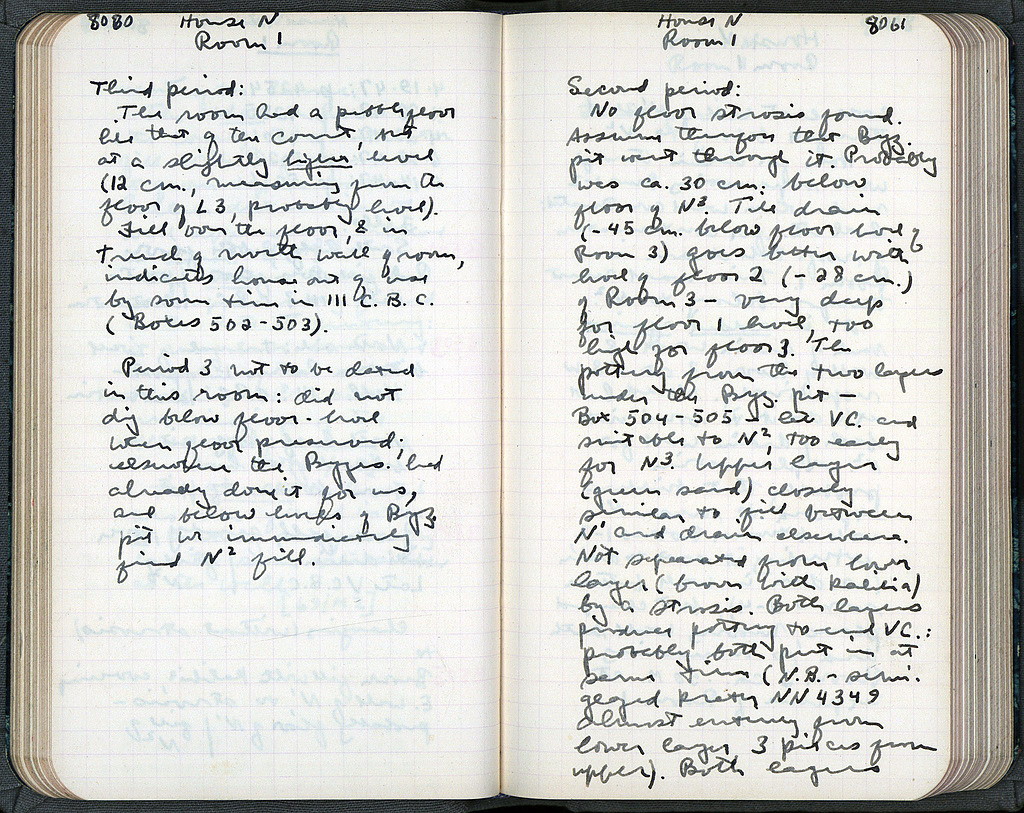 8080
House N
Room 1
Third period:
The room had a pebble floor
like that of the court, but
at a slightly higher level
(12 cm., measuring from the
floor of L3, probably level).
Fill over the floor, & in
trench of north wall of room,
indicates house out of use
by some time in III C. B.C.
(Boxes 502-503).
Period 3 not to be dated
in this room: did not
dig below floor-level
where floor preserved;
elsewhere the Byzzes. had
already done it for us,
and below levels of Byz
pit we immediately
find N² fill.
House N
Room 1
8061
Second period:
No floor strosis found.
Assume therefore that Byz.
pit went through it. Probably
was ca. 30 cm. below
floor of N³. Tile drain
(-45 cm. below floor level of
Room 3) goes better with
level of floor 2 (-28 cm.)
of Room 3 - very deep
for floor 1 level, too
high for floor 3. The
pottery from the two layers
under the Byz. pit -
Box 504-505 - late VC. and
suitable to N², too early
for N³. Upper layer
(green sand) closely
similar to fill between
N¹ and drain elsewhere.
Not separated from lower
layer (brown with kalilia)
by a strosis. Both layers
produce pottery to end VC.:
probably both put in at
same time (N.B. - semi-
glazed krater NN 4349
almost entirely from
lower layer, 3 pieces from
upper). Both layers